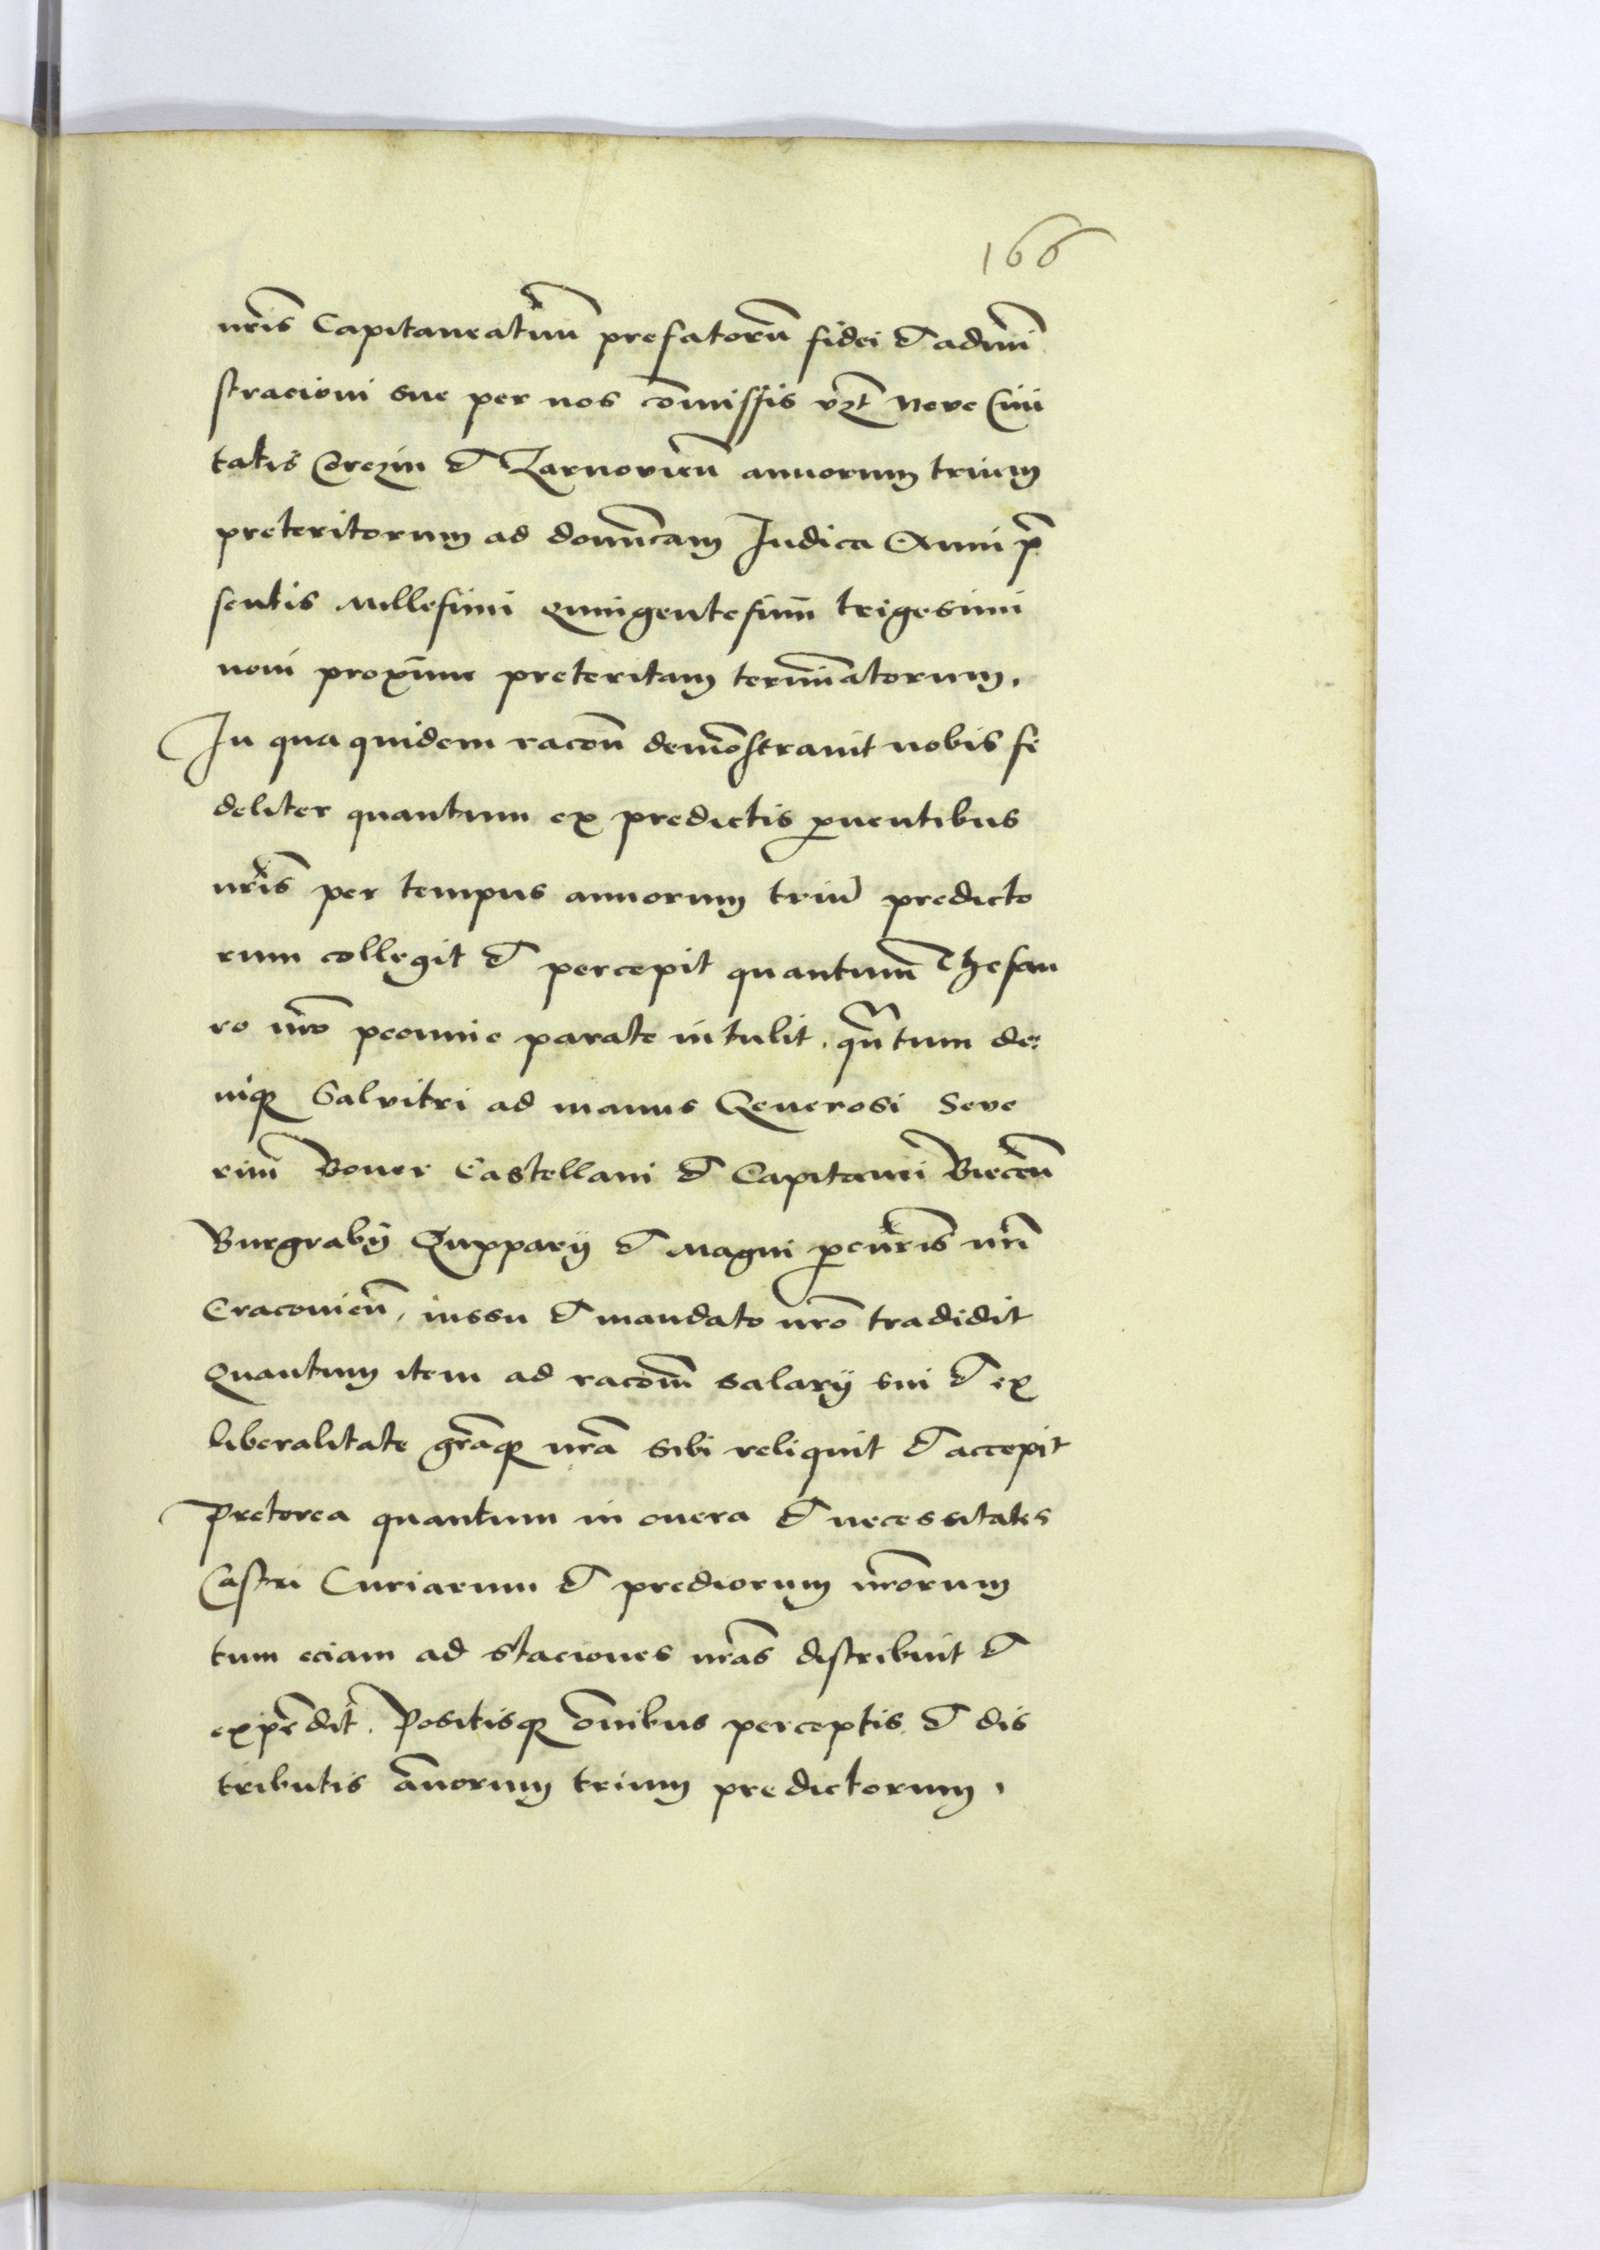 166
nr̃is Capitaneatuũ prefatorũ fidei & admĩ
stracioni sue per nos cõmissis vʒt Nove Civi
tatis Corczin & Zarnovieñ annorum trium
preteritorum ad domĩcam Judica Anni p̃
sentis Millesimi Quingentesimi trigesimi
noni proxime preteritam termĩatorum.
In qua quidem racõe demõstravit nobis fi
deliter quantum ex predictis ꝓventibus
nr̃is per tempus annorum triũ predicto
rum collegit & percepit quantum Thesau
ro nr̃o pecunie parate intulit, quãtum de:
niqꝫ Salnitri ad manus Generosi Seve
rini Boner Castellani & Capitanei Bieceñ
Burgrabij Zupparij & Magni ꝓcurr̃is nr̃i
Cracovieñ, iussu & mandato nr̃o tradidit
Quantum item ad racõem salarij sui & ex
liberalitate gr̃aqꝫ nr̃a sibi reliquit & accepit
Preterea quantum in onera & necessitates
Castri Curiarum & prediorum nr̃orum
tum eciam ad staciones nr̃as distribuit &
expẽdit. Positisqꝫ õnibus perceptis & dis
tributis ãnorum trium predictorum,